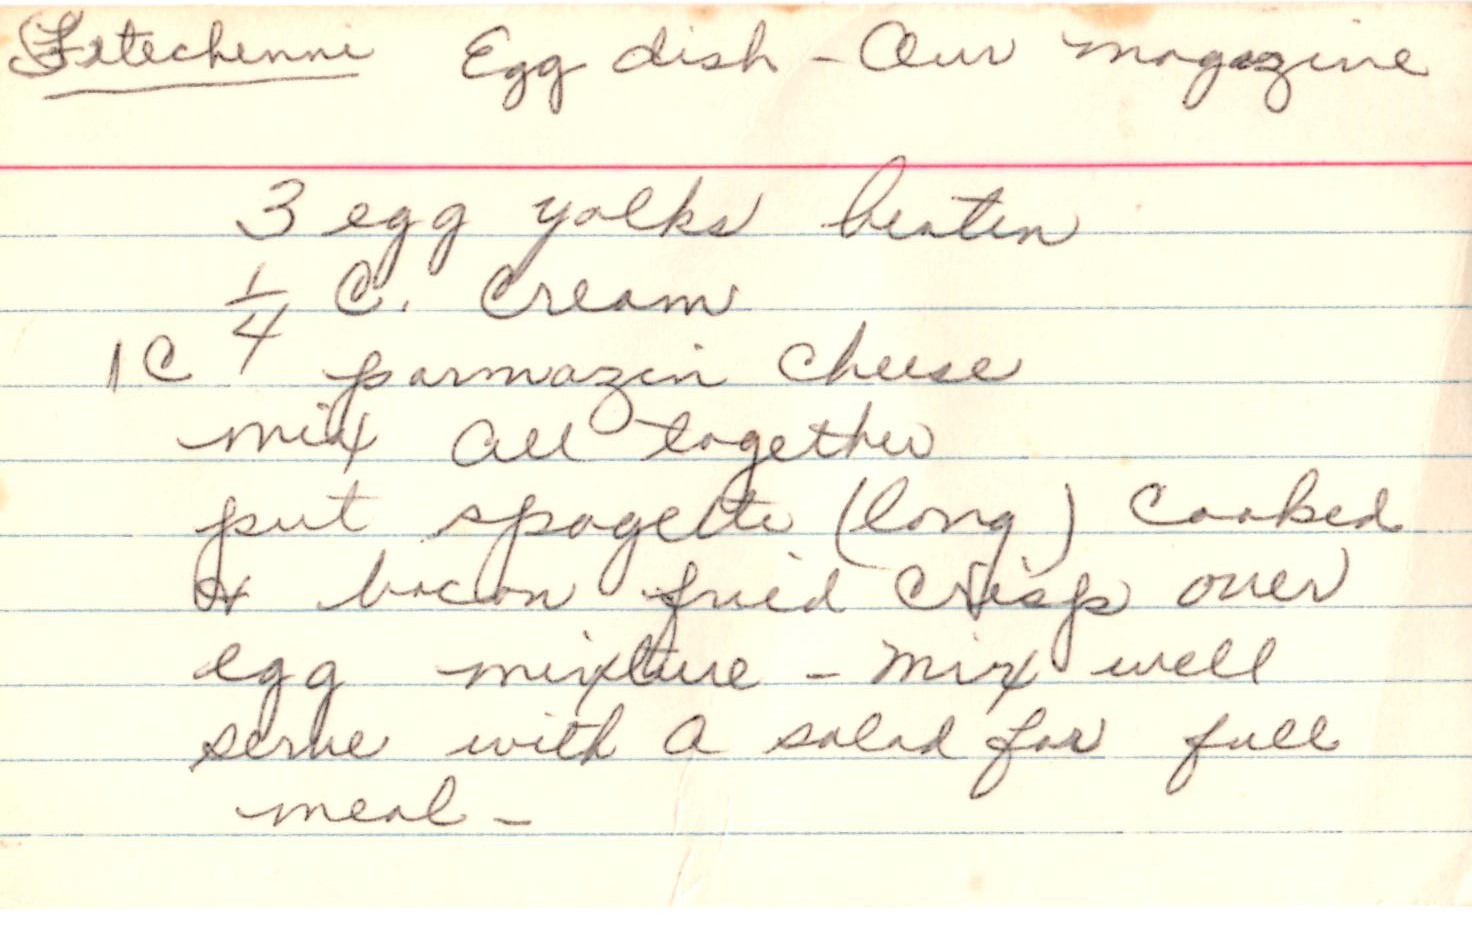 Fetechenni Egg dish - Our magazine
3 egg yolks beaten
1/4 C. Cream
1 C parmazin cheese
mix all together
put spagetti (long) cooked
& bacon fried crisp over
egg mixture - mix well
serve with a salad for full
meal -